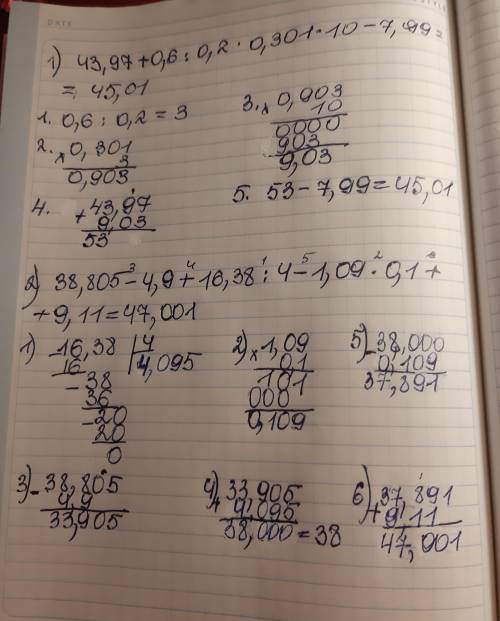 DATE
1) 43,97 + 0,6 : 0,2 · 0,301 · 10 - 7,99 =
= 45,01
1. 0,6 : 0,2 = 3
2. × 0,301
3
0,903
3. × 0,903
10
0000
903
9,03
4. + 43,97
9,03
53
5. 53 - 7,99 = 45,01
2) 38,805 - 4,9 + 16,38 : 4 - 1,09 · 0,1 +
+ 9,11 = 47,001
1) - 16,38 | 4
16 4,095
- 38
36
- 20
20
0
2) × 1,09
01
101
000
0,109
5) - 38,000
0,109
37,891
3) - 38,805
4 9
33,905
4) + 33,905
9,095
38,000 = 38
6) + 37,891
9,11
47,901